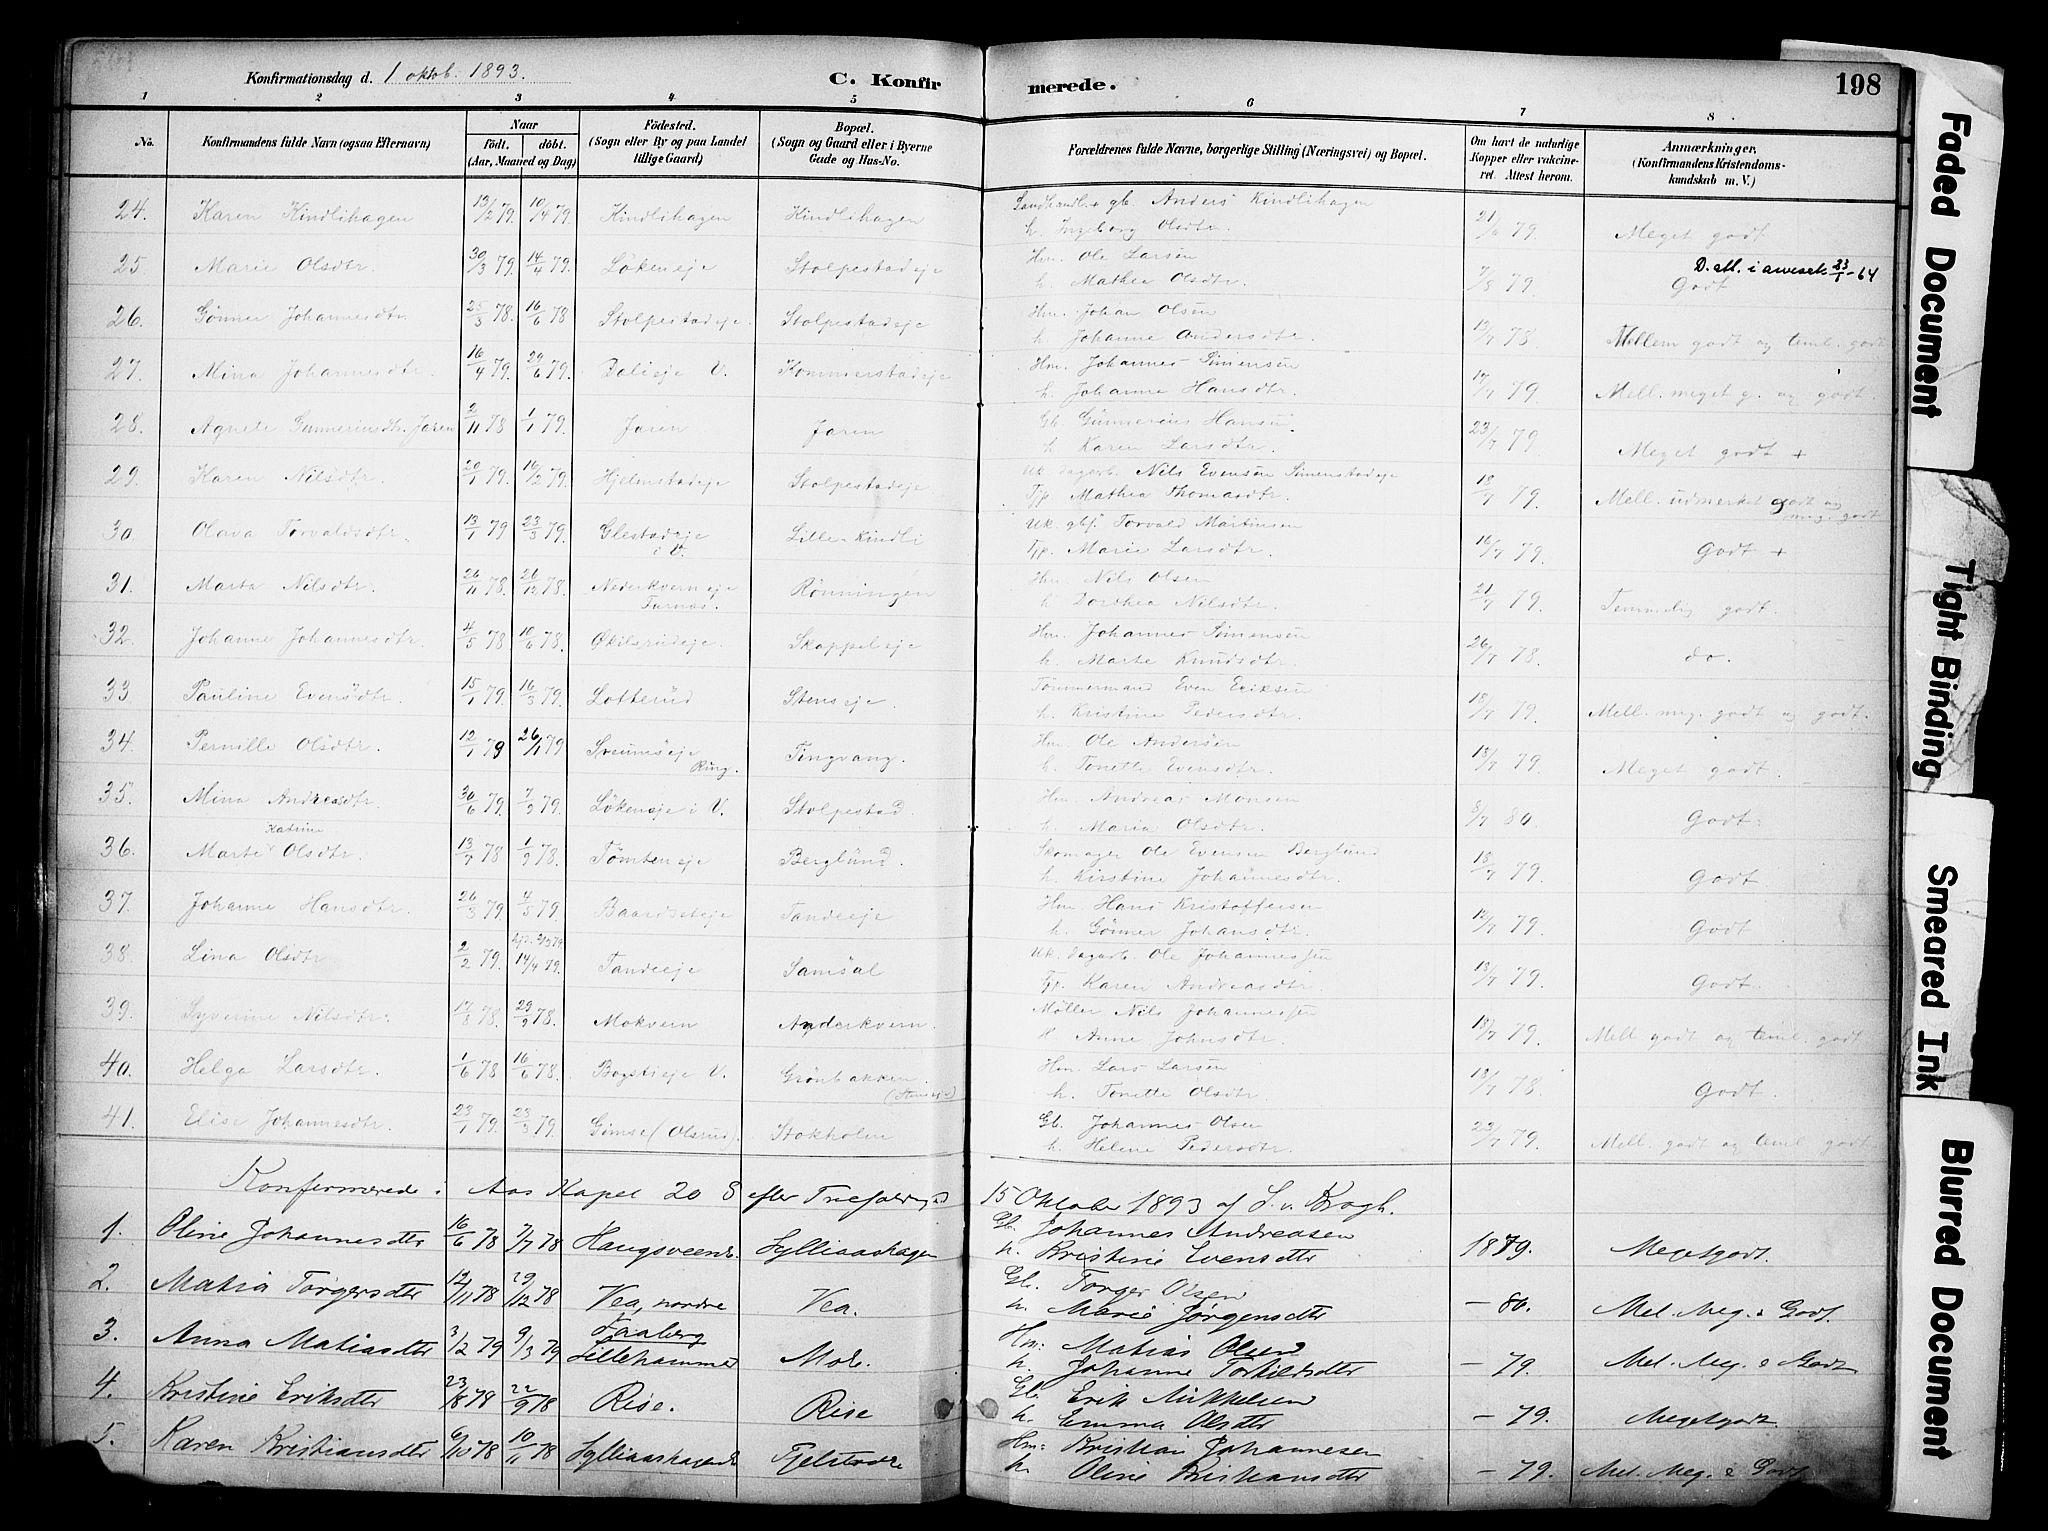 Konfirmationsdag d. 1 oktob. 1893. C. Konfirmerede. 198
1 2 3 4 5 6 7 8
No. Konfirmandens fulde Navn (ogsaa Efternavn) Naar födt. döbt. (Aar, Maaned og Dag) Födested. (Sogn eller By og paa Landet tillige Gaard) Bopæl. (Sogn og Gaard eller i Byerne Gade og Hus-No. Forældrenes fulde Navne, borgerlige Stilling (Næringsvei) og Bopæl. Om havt de naturlige Kopper eller vakcineret. Attest herom. Anmærkninger, (Konfirmandens Kristendomskundskab m. V.)
24. Karen Kindlihagen 13/2 79. 10/4 79. Kindlihagen Kindlihagen Landhandler gb. Anders Kindlihagen
h. Ingeborg Olsdtr. 21/6 79. Meget godt
25. Marie Olsdtr. 30/3 79. 14/4 79. Lökeneje Stolpestadeje Hm. Ole Larsen
D. att. i avesek 23/1-64
h. Mathea Olsdtr. 7/8 79. Godt
26. Gönner Johannesdtr. 25/3 78. 16/6 78 Stolpestadeje. Stolpestadeje Hm. Johan Olsen
h. Johanne Andersdtr. 13/7 78 Mellem godt og teml. godt
27. Mina Johannesdtr. 16/4 79. 29/6 79. Dalieje V. Kommerstadeje Hm. Johannes Simensen
h. Johanne Hansdtr. 17/7 79. Mell. meget g. og godt.
28. Agnete Gunneriusdtr. Jaren 2/11 78 1/1 79. Jaren Jaren Gb. Gunnerius Hansen
h. Karen Larsdtr. 23/7 79. Meget godt +
29. Karen Nilsdtr. 20/1 79. 16/2 79. Hjelmstadeje Stolpestadeje Uk. dagarb. Nils Evensen Simenstadeje
Tjp. Mathea Thomasdtr. 18/7 79. Mell. udmerket godt og meg. godt
30 Olava Torvaldsdtr. 13/1 79 23/3 79. Glestadeje i V. Lille-Kindli Uk. gbs. Torvald Martinsen
Tjp. Marie Larsdtr. 16/7 79. Godt +
31. Marta Nilsdtr. 26/11 78. 26/12 78. Nederkverneje Furnes. Rönningen Hm. Nils Olsen
h. Dorthea Nilsdtr. 21/7 79. Temmelig godt.
32. Johanne Johannesdtr. 4/5 78 10/6 78. Økilsrudeje. Skappeleje Hm. Johannes Simensen
h. Marte Knudsdtr. 26/7 78. do.
33 Pauline Evensdtr. 15/1 79. 16/3 79. Lotterud Stenseje. Tömmermand Even Eriksen
h. Kristine Pedersdtr. 18/7 79. Mell. meg. godt og godt.
34. Pernille Olsdtr. 12/1 79 26/1 79 Sveumseje Ring. Tingvang. Hm. Ole Andersen
h. Tonette Evensdtr. 13/7 79. Meget godt.
35. Mina Andreasdtr. 30/6 79. 7/9 79. Lökeneje i V. Stolpestad Hm. Andreas Monsen
h. Maria Olsdtr. 3/7 80. Godt.
36. Marte Katrine Olsdtr. 13/7 78 1/9 78. Tömteneje Berglund. Skomager Ole Evensen Berglund
h. Kirstine Johannesdtr. 18/7 79. Godt
37. Johanne Hansdtr. 26/3 79. 4/5 79. Baardseteje Tandeeje Hm. Hans Kristoffersen
h. Gönner Johansdtr. 12/7 79. Godt
38. Lina Olsdtr 2/2 79. 14/4 79. Tandeeje Samsal Uk. dagarb. Ole Johannessen
Tjp. Karen Andreasdtr. 13/7 79. Godt.
39. Syverine Nilsdtr. 17/8 78. 29/9 78. Mokvern Anderkvern. Möller Nils Johannessen
h. Anne Johnsdtr. 18/7 79. Mell. godt og teml. godt
40. Helga Larsdtr. 1/6 78 16/6 78. Bogstieje V. Grönbakken. (Stenseje) Hm. Lars Larsen
h. Tonette Olsdtr. 13/7 78. Godt.
41. Elise Johannesdtr. 23/1 79. 23/3 79. Gimse (Olsrud). Stokholm Gb. Johannes Olsen
h. Helene Pedersdtr. 23/7 79. Mell. godt og teml. godt
Konfirmerede i Aas Kapel 20 S. efter Trefoldigh. 15 Oktober 1893 af S. v. Krogh.
1. Oline Johannesdtr 16/6 78 7/7 78 Haugsveende. Sylliaashagen Gb. Johannes Andreasen
h. Kristine Evensdtr 1879. Megetgodt.
2. Matia Torgersdtr 12/11 78 29/12 78 Vea, nordre Vea. Gb. Torger Olsen
h. Marie Jørgensdtr - 80. Mel. Meg. & Godt.
3. Anna Matiasdtr 3/2 79 9/3 79 Faaberg Lillehammer Moe. Hm: Matias Olsen
h. Johanne Torkildsdtr - 79. Mel. Meg. & Godt
4. Kristine Eriksdtr 23/8 78 22/9 78 Rise. Rise Gb. Erik Mikkelsen
h. Emma Olsdtr - 79. Megetgodt.
5. Karen Kristiansdtr 6/10 78 10/11 78 Sylliaashagen Fjelstadre Hm: Kristian Johannesen
h. Oline Kristiansdtr - 79. Mel. Meg. & Godt
Faded Document
Tight Binding
Smeared Ink
Blurred Document